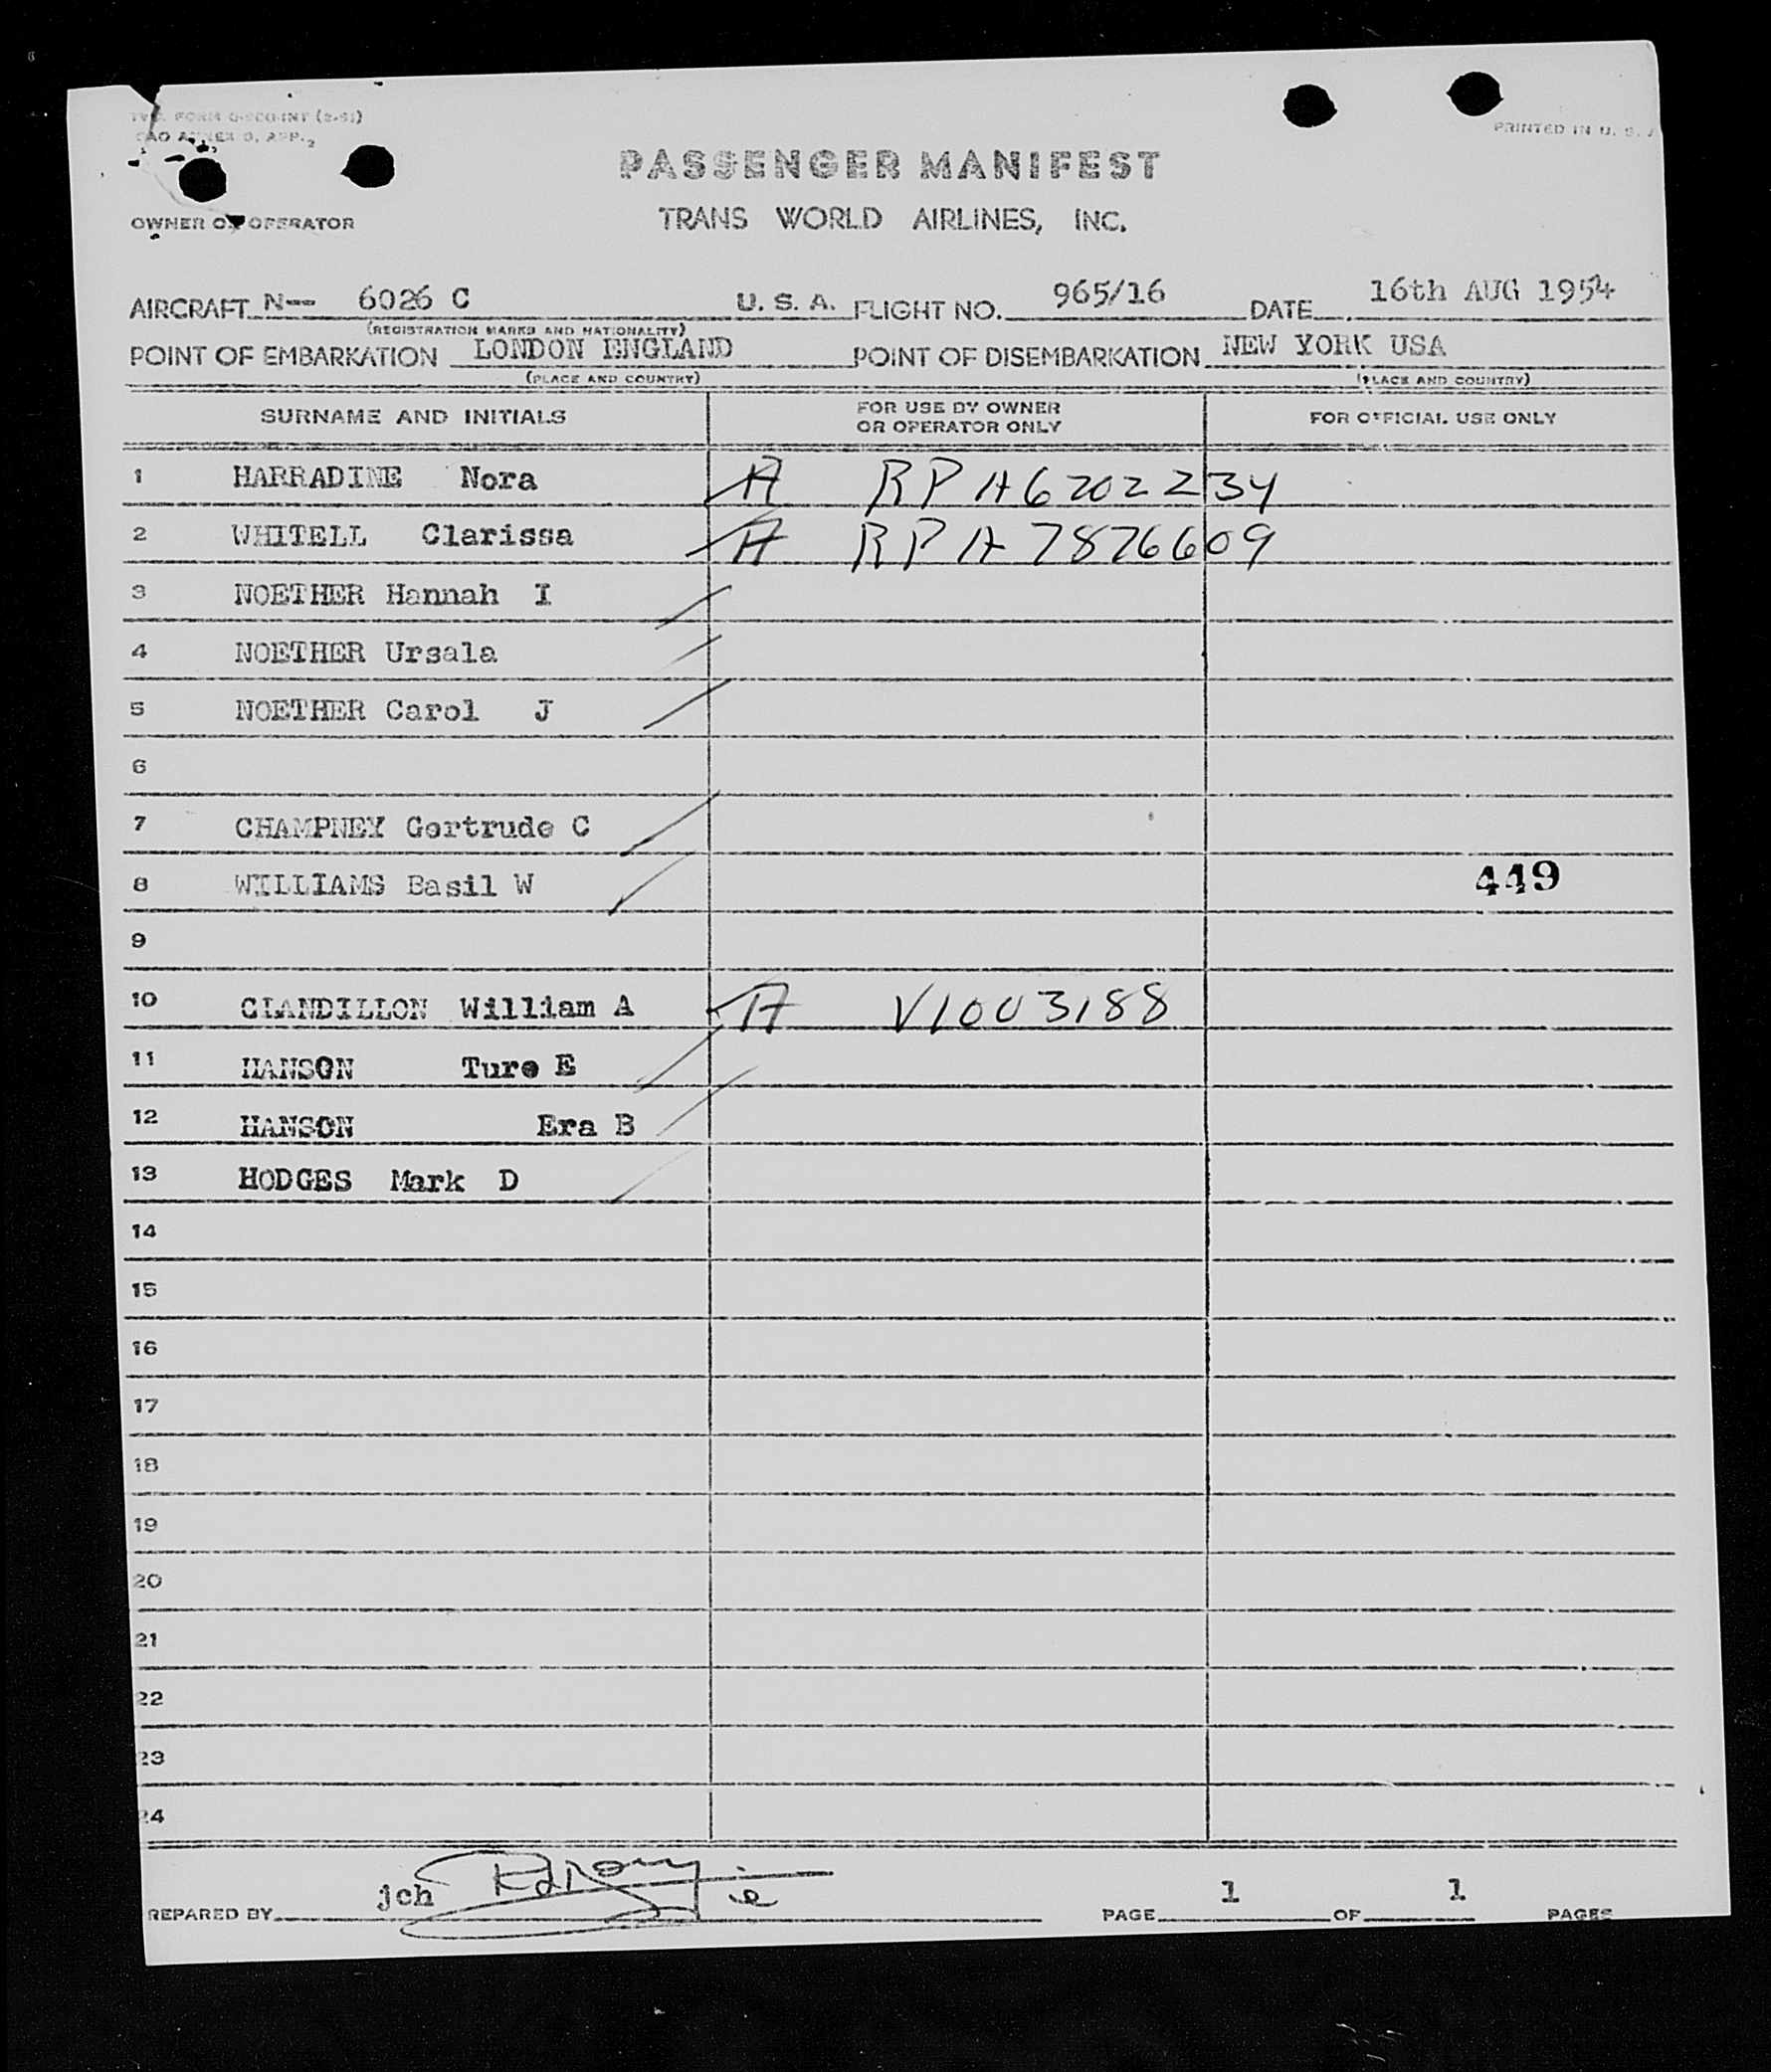 PRINTED IN U. S. A
PASSENGER MANIFEST
OWNER OR OPERATOR TRANS WORLD AIRLINES, INC.
AIRCRAFT N-- 6026 C U. S. A. FLIGHT NO. 965/16 DATE 16th AUG 1954
(REGISTRATION MARKS AND NATIONALITY)
POINT OF EMBARKATION LONDON ENGLAND POINT OF DISEMBARKATION NEW YORK USA
(PLACE AND COUNTRY) (PLACE AND COUNTRY)
SURNAME AND INITIALS FOR USE BY OWNER OR OPERATOR ONLY FOR OFFICIAL USE ONLY
1 HARRADINE Nora A RP A6202234
2 WHITELL Clarissa A RP A7876609
3 NOETHER Hannah I
4 NOETHER Ursala
5 NOETHER Carol J
6
7 CHAMPNEY Gertrude C
8 WILLIAMS Basil W 449
9
10 CLANDILLON William A A V1003188
11 HANSON Ture E
12 HANSON Era B
13 HODGES Mark D
14
15
16
17
18
19
20
21
22
23
24
PREPARED BY jch PAGE 1 OF 1 PAGES